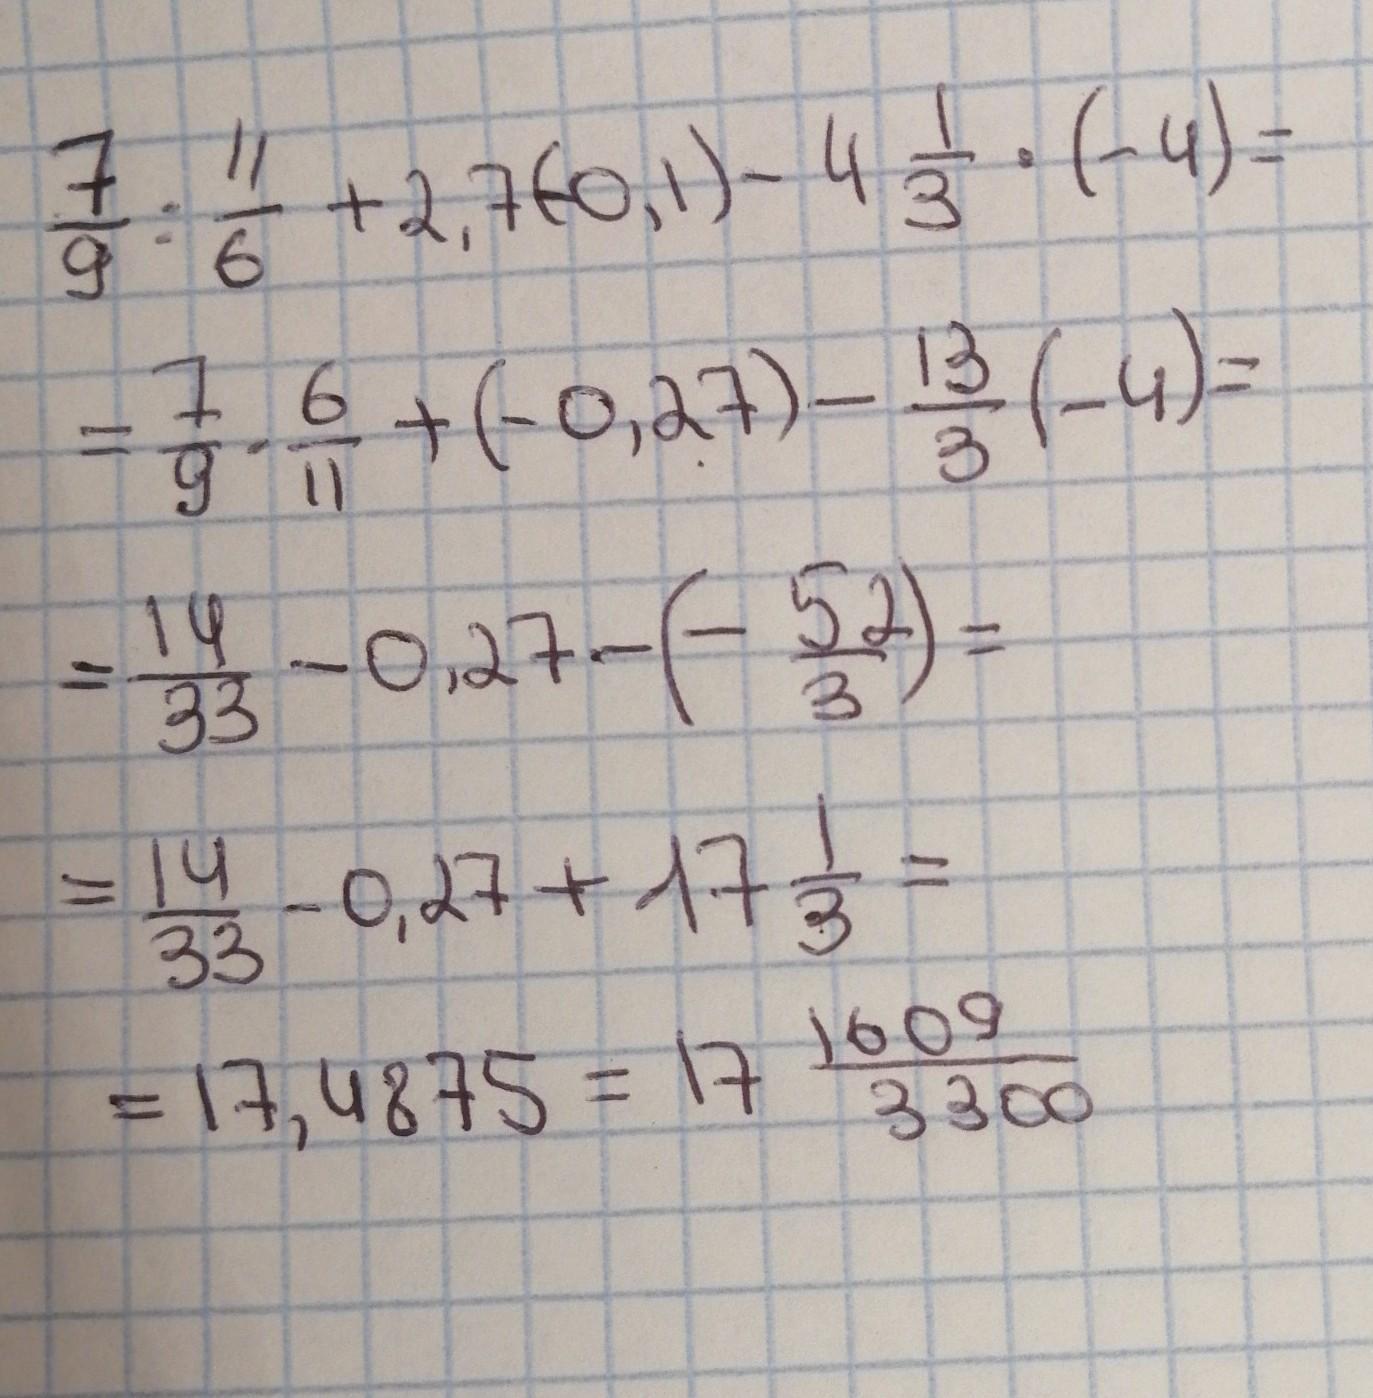 7/9 : 11/6 + 2,7(-0,1) - 4 1/3 · (-4) =
= 7/9 · 6/11 + (-0,27) - 13/3 (-4) =
= 14/33 - 0,27 - (- 52/3) =
= 14/33 - 0,27 + 17 1/3 =
= 17,4875 = 17 1609/3300